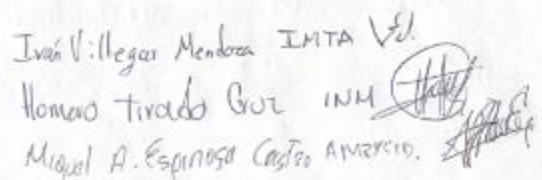 Iván Villegas Mendoza IMTA
Homero Tirado Cruz INM
Miguel A. Espinosa Castro